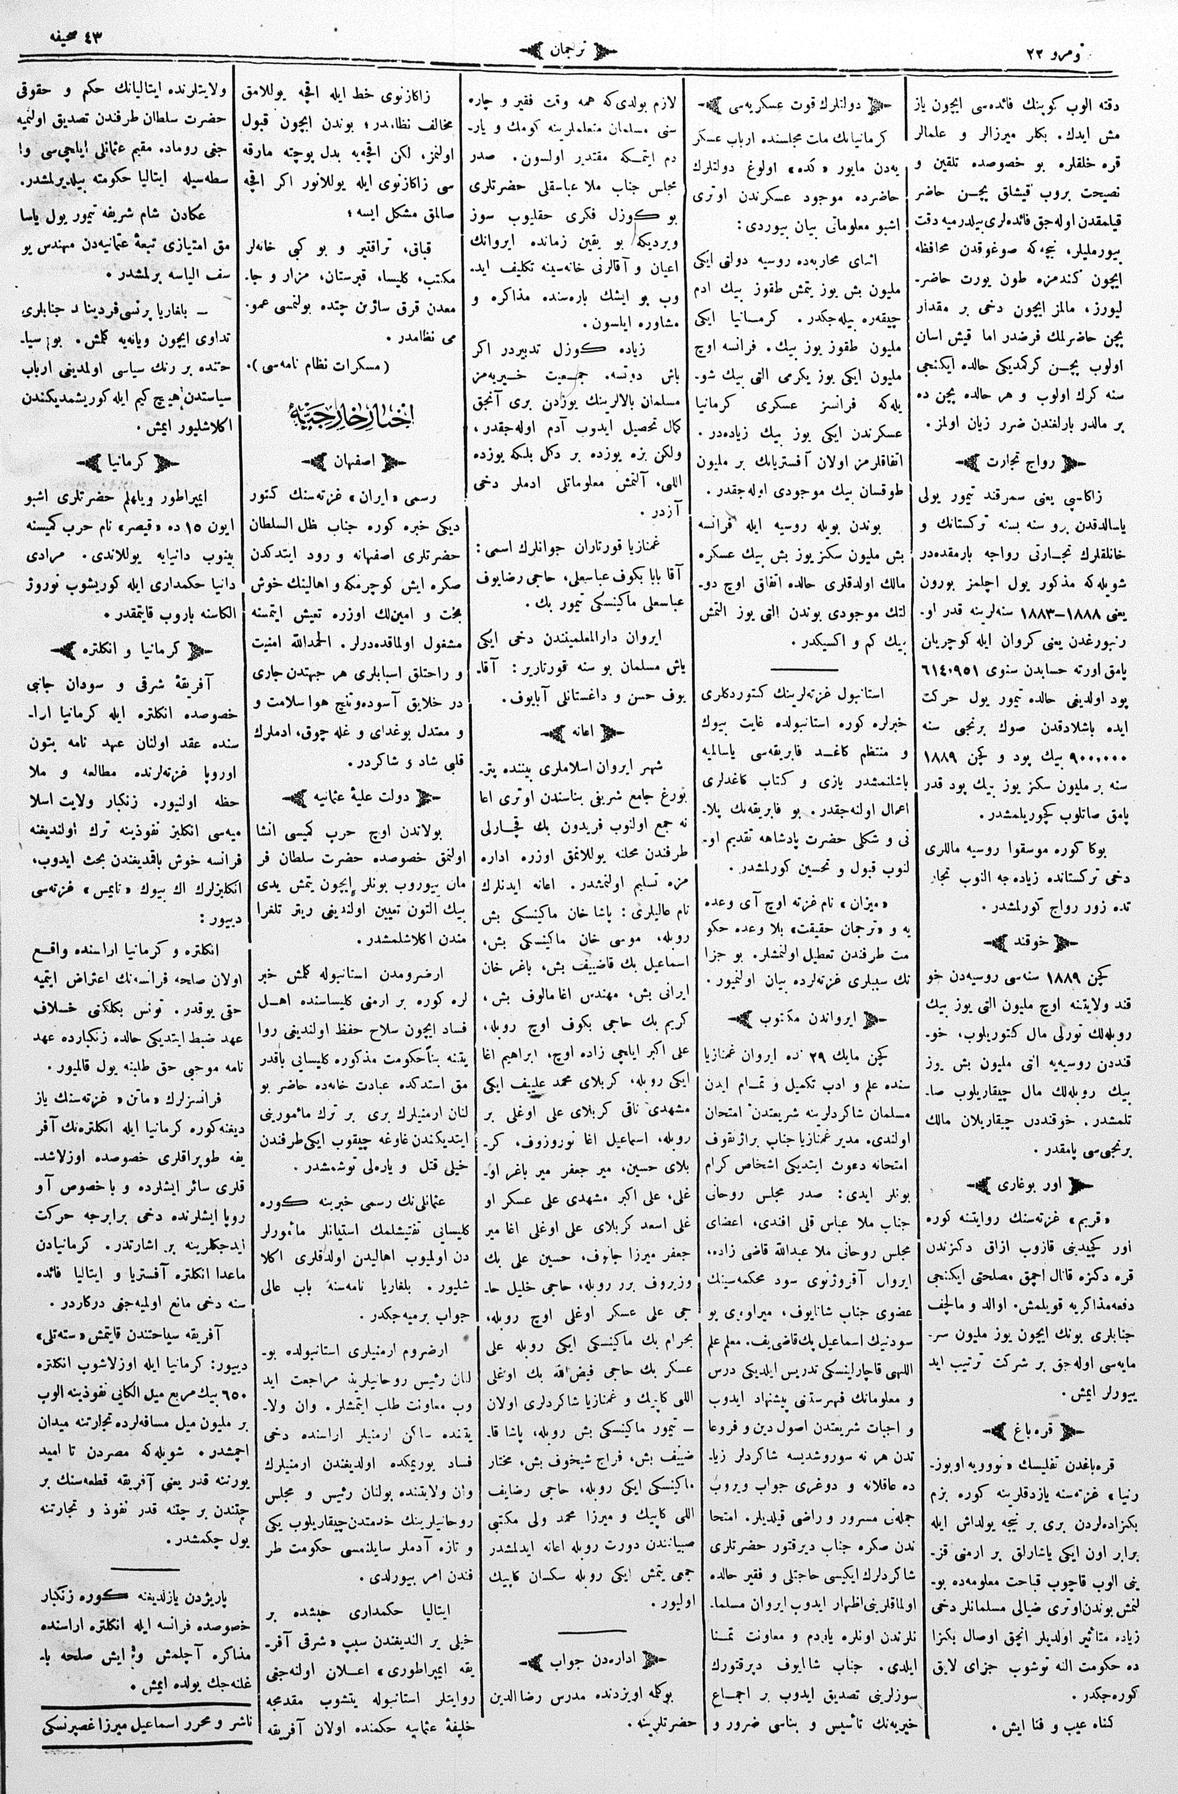 نومرو ٢٢
ترجمان
٤٣ صحیفه
دقته الوب كوینك فائده‌سی ایچون یاز
مش ایدك. بكلر میرزالر و علمالر
قره خلقلره بو خصوصده تلقین و
نصیحت بروب قیشلق پچن حاضر
قیلمقدن اوله‌جق فائده‌لری بیلدرمیه دقت
بیورملیلر، نیجه‌كه صوغوقدن محافظه
ایچون كندمزه طون یورت حاضر-
لیورز، مالمز ایچون دخی بر مقدار
پچن حاضرلمك فرضدر اما قیش اسان
اولوب پچن كركمدیكی حالده ایكنجی
سنه كرك اولوب و هر حالده پچن ده
بر مالدر بارلغندن ضرر زیان اولمز.
رواج تجارت
زاكاسپی یعنی سمرقند تیمور یولی
یاسالدقدن برو سنه بسنه تركستانك و
خانلقلرك تجارتی رواجه بارمقده‌در
شویله‌كه مذكور یول اچلمز بورون
یعنی ١٨٨٨–١٨٨٣ سنه‌لرینه قدر او-
رنبورغدن یعنی كروان ایله كوچریان
پامق اورته حسابدن سنوی ٦١٤٠٩٥١
پود اولدیغی حالده تیمور یول حركت
ایده باشلادقدن صوك برنجی سنه
٩٠٠٠٠٠٠ بیك پود و كچن ١٨٨٩
سنه بر ملیون سكز یوز بیك پود قدر
پامق صاتلوب كچوریلمشدر.
بوكا كوره موسقوا روسیه ماللری
دخی تركستانده زیاده‌جه النوب تجار
تده زور رواج كورلمشدر.
خوقند
كچن ١٨٨٩ سنه‌سی روسیه‌دن خو
قند ولایتنه اوچ ملیون التی یوز بیك
روبله‌لك تورلی مال كتوریلوب، خو-
قنددن روسیه‌یه التی ملیون بش یوز
بیك روبله‌لك مال چیقاریلوب صا-
تلمشدر. خوقنددن چیقاریلان مالك
برنجی‌سی پامقدر.
اور بوغازی
«قریم» غزته‌سنك روایتنه كوره
اور كچیدینی قازوب ازاق دكزندن
قره دكزه قانال اچمق مصلحتی ایكنجی
دفعه مذاكریه قویلمش. اوالد و مالجف
جنابلری بونك ایچون یوز ملیون سر-
مایه‌سی اوله‌جق بر شركت ترتیب اید
یورلر ایمش.
قره باغ
قره‌باغدن تفلیسك «نوویه اوبوز-
رنیا» غزته‌سنه یازدقلرینه كوره بزم
بكزاده‌لردن بری بر نیجه یولداش ایله
برابر اون ایكی یاشارلق بر ارمنی قز-
ینی الوب قاچوب قباحت معلومه‌ده بو-
لنمش بوندن اوتری ضیالی مسلمانلر دخی
زیاده متأثیر اولدیلر انجق اوصال بكزا
ده حكومت النه توشوب جزای لایق
كوره‌جكدر.
كناه عیب و قنا ایش.
دولتلرك قوت عسكریه‌سی
كرمانیانك ملت مجلسنده ارباب عسكر
یه‌دن مایور «كده» اولوغ دولتلرك
حاضرده موجود عسكرندن اوتری
اشبو معلوماتی بیان بیوردی:
اثنای محاربه‌ده روسیه دولتی ایكی
ملیون بش یوز یتمش طقوز بیك ادم
چیقره بیله‌جكدر. كرمانیا ایكی
ملیون طقوز یوز بیك. فرانسه اوچ
ملیون ایكی یوز یكرمی التی بیك شو-
یله‌كه فرانسز عسكری كرمانیا
عسكرندن ایكی یوز بیك زیاده‌در.
اتفاقلرمز اولان آفستریانك بر ملیون
طوقسان بیك موجودی اوله‌جقدر.
بوندن بویله روسیه ایله فرانسه
بش ملیون سكز یوز بش بیك عسكره
مالك اولدقلری حالده اتفاق اوچ دو-
لتك موجودی بوندن التی یوز التمش
بیك كم و اكسیكدر.
استانبول غزته‌لرینك كتوردكلری
خبرلره كوره استانبولده غایت بیوك
و منتظم كاغد فابریقه‌سی یاسالمیه
باشلنمشدر یازی و كتاب كاغدلری
اعمال اولنه‌جقدر. بو فابریقه‌نك پلا-
نی و شكلی حضرت پادشاهه تقدیم او-
لنوب قبول و تحسین كورلمشدر.
«میزان» نام غزته اوچ آی وعده
یه و «ترجمان حقیقت» بلا وعده حكو
مت طرفندن تعطیل اولنمشلر. بو جزا
نك سببلری غزته‌لرده بیان اولنمیور.
ایرواندن مكتوب
كچن مایك ٢٩ نده ایروان غمنازیا
سنده علم و ادب تكمیل و تمام ایدن
مسلمان شاكردلرینه شریعتدن امتحان
اولندی. مدیر غمنازیا جناب براژنقوف
امتحانه دعوت ایتدیكی اشخاص كرام
بونلر ایدی: صدر مجلس روحانی
جناب ملا عباس قلی افندی، اعضای
مجلس روحانی ملا عبدالله قاضی زاده،
ایروان آقروژنوی سود محكمه‌سینك
عضوی جناب شاتایوف، میراوری یو
سودنیك اسماعیل بك قاضی‌یف. معلم علم
اللهی قاچارلینسكی تدریس ایلدیكی درس
و معلوماتك فهرستنی پیشنهاد ایدوب
و اجبات شریعتدن اصول دین و فروعا
تدن هر نه سوروشدیسه شاكردلر زیا-
ده عاقلانه و دوغری جواب ویروب
جمله‌نی مسرور و راضی قیلدیلر. امتحا
ندن صكره جناب دیرقتور حضرتلری
شاكردلرك ایكیسی حاجتلی و فقیر حالده
اولماقلرینی اظهار ایدوب ایروان مسلما-
نلرندن اونلره یاردم و معاونت تمنا
ایلدی. جناب شاتایوف دیرقتورك
سوزلرینی تصدیق ایدوب بر اجماع
خیریه‌نك تأسیس و بناسی ضرور و
لازم بولدی‌كه همه وقت فقیر و چاره
سی مسلمان متعلملرینه كومك و یار-
دم ایتمسكه مقتدیر اولسون. صدر
مجلس جناب ملا عباسقلی حضرتلری
بو كوزل فكری حقلیوب سوز
ویردیكه بو یقین زمانده ایروانك
اعیان و آقالرنی خانه‌سینه تكلیف اید-
وب بو ایشك باره‌سنده مذاكره و
مشاوره ایلسون.
زیاده كوزل تدبیردر اكر
باش دوتسه. جمعیت خیریه‌مز
مسلمان بالالرینك یوزدن بری آنجق
كمال تحصیل ایدوب آدم اوله‌جقدر،
ولكن بزه یوزده بر دكل بلكه یوزده
اللی، آلتمش معلوماتلی ادملر دخی
آزدر.
غمنازیا قورتاران جوانلرك اسمی:
آقا بابا بكوف عباسعلی، حاجی رضایوف
عباسعلی ماكینسكی تیمور بك.
ایروان دارالمعلمیندن دخی ایكی
یاش مسلمان بو سنه قورتاریر: آقا-
یوف حسن و داغستانلی آبایوف.
اعانه
شهر ایروان اسلاملری بیننده پتر-
بورغ جامع شریفی بناسندن اوتری اعا
نه جمع اولنوب فریدون بك قچارلی
طرفندن محلنه یوللانمق اوزره اداره
مزه تسلیم اولنمشدر. اعانه ایدنلرك
نام عالیلری: پاشا خان ماكینسكی بش
روبله، موسی خان ماكینسكی بش،
اسماعیل بك قاضییف بش، باغر خان
ایرانی بش، مهندس اغا مالوف بش،
كریم بك حاجی بكوف اوچ روبله،
علی اكبر ایلچی زاده اوچ، ابراهیم اغا
ایكی روبله، كربلای محمد علییف ایكی
مشهدی ناقی كربلای علی اوغلی بر
روبله، اسماعیل اغا نوروزوف، كر-
بلای حسین، میر جعفر میر باغر او-
غلی، علی اكبر مشهدی علی عسكر او
غلی اسعد كربلای علی اوغلی اغا میر
جعفر میرزا چاوف، حسین علی بك
وزیروف برر روبله، حاجی خلیل حا-
جی علی عسكر اوغلی اوچ روبله،
بحرام بك ماكینسكی ایكی روبله علی
عسكر بك حاجی فیض الله بك اوغلی
اللی كاپیك و غمنازیا شاكردلری اولان
– تیمور ماكینسكی بش روبله، پاشا قا-
ضییف بش، فراج شیخوف بش، مختار
ماكینسكی ایكی روبله، حاجی رضایف
اللی كاپیك و میرزا محمد ولی مكتبی
صبیانندن دورت روبله اعانه ایدلمشدر
جمعی یتمش ایكی روبله سكسان كاپیك
اولیور.
اداره‌دن جواب
بوكمله اوبزدنده مدرس رضاالدین
حضرتلرینه.
زاكازنوی خط ایله اقچه یوللامق
مخالف نظامدر؛ بوندن ایچون قبول
اولنمز، لكن اقچه‌یه بدل پوچته مارقه
سی زاكازنوی ایله یوللانور اكر اقچه
صالمق مشكل ایسه؛
قباق، تراقتیر و بو كبی خانه‌لر
مكتب، كلیسا، قبرستان، مزار و جا-
معدن قرق ساژین چتده بولنمسی عمو-
می نظامدر.
(مسكرات نظام نامه‌سی).
اخبار خارجیه
اصفهان
رسمی «ایران» غزته‌سنك كتور
دیكی خبره كوره جناب ظل السلطان
حضرتلری اصفهانه و رود ایتدكدن
صكره ایش كوچرمكه و اهالینك خوش
بخت و امین‌لك اوزره تعیش ایتمسنه
مشغول اولماقده‌درلر. الحمدالله امنیت
و راحتلق اسبابلری هر جهتدن جاری
در خلایق آسوده و تنچ هوا سلامت و
و معتدل بوغدای و غله چوق، ادملرك
قلبی شاد و شاكردر.
دولت علیۀ عثمانیه
بولاندن اوچ حرب كمیسی انشا
اولنمق خصوصده حضرت سلطان فر
مان بیوروب بونلر ایچون یتمش یدی
بیك التون تعیین اولندیغی ریتر تلغرا
مندن اكلاشلمشدر.
ارضرومدن استانبوله كلمش خبر
لره كوره بر ارمنی كلیساسنده اهل
فساد ایچون سلاح حفظ اولندیغی روا
یتنه بناً حكومت مذكوره كلیسایی باقدر
مق استدكده عبادت خانه‌ده حاضر بو
لنان ارمنیلرك بری بر ترك مأمورینی
ایتدیكندن غاوغه چیقوب ایكی طرفندن
خیلی قتل و یاره‌لی توشمشدر.
عثمانلی‌نك رسمی خبرینه كوره
كلیسایی تفتیشلمك استیانلر مأمورلر
دن اولمیوب اهالیدن اولدقلری اكلا
شلیور. بلغاریا نامه‌سنه باب عالی
جواب برمیه‌جكدر.
ارضروم ارمنیلری استانبولده بو-
لنان رئیس روحانیلریند مراجعت اید
وب معاونت طلب ایتمشلر. وان ولا-
یتنده ساكن ارمنیلر اراسنده دخی
فساد یوریمكده اولدیغندن ارمنیلرك
وان ولایتنده بولنان رئیس و مجلس
روحانیلرینك خدمتدن چیقاریلوب یكی
و تازه آدملر سایلنمسی حكومت طر
فندن امر بیورلدی.
ایتالیا حكمداری حبشده بر
خیلی یر الدیغندن سبب «شرقی آفر-
یقه ایمپراطوری» اعلان اوله‌جغی
روایتلر استانبوله یتشوب مقدمجه
خلیفۀ عثمانیه حكمنده اولان آفریقه
ولایتلرنده ایتالیانك حكم و حقوقی
حضرت سلطان طرفندن تصدیق اولنمیه
جغی روماده. مقیم عثمانلی ایلچی‌سی وا
سطه‌سیله ایتالیا حكومته بیلدیرلمشدر.
عكادن شام شریفه تیمور یول یاسا
مق امتیازی تبعۀ عثمانیه‌دن مهندس یو
سف الیاسه برلمشدر.
– بلغاریا پرنسی فردیناند جنابلری
تداوی ایچون ویانه‌یه كلمش. بو سیا-
حتنده بر رنك سیاسی اولمدیغی ارباب
سیاستدن هیچ كیم ایله كوریشمدیكندن
اكلاشلیور ایمش.
كرمانیا
ایمپراطور ویلهلم حضرتلری اشبو
ایون ١٥ ده «قیصر» نام حرب كمیسنه
بینوب دانیایه یوللاندی. مرادی
دانیا حكمداری ایله كوریشوب نوروژ
الكاسنه باروب قایتمقدر.
كرمانیا و انكلتره
آفریقۀ شرقی و سودان جانبی
خصوصده انكلتره ایله كرمانیا ارا-
سنده عقد اولنان عهد نامه بتون
اوروپا غزته‌لرنده مطالعه و ملا
حظه اولنیور. زنكبار ولایت اسلا
میه‌سی انكلیز نفوذینه ترك اولندیغنه
فرانسه خوش باقمدیغندن بحث ایدوب،
انكلیزلرك اك بیوك «تایمس» غزته‌سی
دییور:
انكلتره و كرمانیا اراسنده واقع
اولان صلحه فرانسه‌نك اعتراض ایتمیه
حقی یوقدر. تونس بكلكنی خلاف
عهد ضبط ایتدیكی حالده زنكبارده عهد
نامه موجبی حق طلبنه یول قالمیور.
فرانسزلرك «ماتن» غزته‌سنك یاز
دیغنه كوره كرمانیا ایله انكلتره‌نك آفر
یقه طوپراقلری خصوصده اوزلاشد-
قلری سائر ایشلرده و با خصوص آو
روپا ایشلرنده دخی برابرجه حركت
ایده‌جكلرینه بر اشارتدر. كرمانیادن
ماعدا انكلتره آفستریا و ایتالیا فائده
سنه دخی مانع اولمیه‌جغی دركاردر.
آفریقه سیاحتندن قایتمش «ستنه‌لی»
دییور: كرمانیا ایله اوزلاشوب انكلتره
٦٥٠ بیك مربع میل الكایی نفوذینه الوب
بر ملیون میل مسافه‌لرده تجارتنه میدان
اچمشدر. شویله‌كه مصردن تا امید
یورتنه قدر یعنی آفریقه قطعه‌سنك بر
چتندن بر چتنه قدر نفوذ و تجارتنه
یول چكمشدر.
پاریژدن یازلدیغنه كوره زنكبار
خصوصده فرانسه ایله انكلتره اراسنده
مذاكره آچلمش و ایش صلحه با-
غلنه‌جك یولده ایمش.
ناشر و محرر اسماعیل میرزا غصپرنسكی